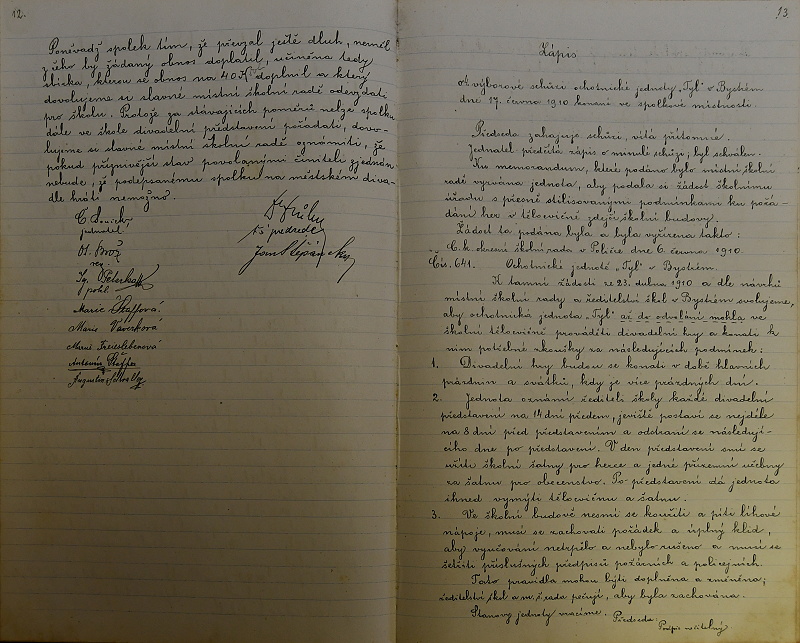 12.
Poněvadž spolek tím, že převzal ještě dluh, neměl
z čeho by žádaný obnos doplatil, učiněna tedy
sbírka, kterou se obnos na 40 K doplnil a který
dovolujeme si slavné místní školní radě odevzdati
pro školu. Protože za stávajících poměrů nelze spolku
dále ve škole divadelní představení pořádati, dovo-
lujeme si slavné místní školní radě oznámiti, že
pokud příznivější stav povolanými činiteli zjednán
nebude, že podepsanému spolku na městském diva-
dle hráti nemožno.
jednatel
Ot. Brož
rež.
pokl.
Marie Štaffová
Marie Vaverková
Marie
Antonín Štaffa
Augustin
13
Zápis
o výborové schůzi ochotnické jednoty „Tyl" v Bystrém
dne 17. června 1910 konané ve spolkové místnosti.
Předseda zahajuje schůzi, vítá přítomné.
Jednatel předčítá zápis o minulé schůzi; byl schválen.
Ku memorandum, které podáno bylo místní školní
radě vyzvána jednota, aby podala si žádost školnímu
úřadu s přesně stilisovanými podmínkami ku pořá-
dání her v tělocvičně zdejší školní budovy.
Žádost ta podána byla a byla vyřízena takto:
C. k. okresní školní rada v Poličce dne 6. června 1910.
Čís. 641. Ochotnické jednotě „Tyl" v Bystrém.
K tamní žádosti ze 23. dubna 1910 a dle návrhu
místní školní rady a ředitelství škol v Bystrém svolujeme,
aby ochotnická jednota „Tyl" až do odvolání mohla ve
školní tělocvičně prováděti divadelní hry a konati k
nim potřebné zkoušky za následujících podmínek:
1. Divadelní hry budou se konati v době hlavních
prázdnin a svátků, kdy je více prázdných dní.
2. Jednota oznámí řediteli školy každé divadelní
představení na 14 dní předem, jeviště postaví se nejdéle
na 8 dní před představením a odstraní se následují-
cího dne po představení. V den představení smí se
užíti školní šatny pro herce a jedné přízemní učebny
za šatnu pro obecenstvo. Po představení dá jednota
ihned vymýti tělocvičnu a šatnu.
3. Ve školní budově nesmí se kouřiti a píti lihové
nápoje, musí se zachovati pořádek a úplný klid,
aby vyučování netrpělo a nebylo rušeno a musí se
šetřiti příslušných předpisů požárních a policejních.
Tato pravidla mohou býti doplněna a změněna;
ředitelství škol a m. š. rada pečují, aby byla zachována.
Stanovy jednoty vracíme. Předseda:
Podpis nečitelný